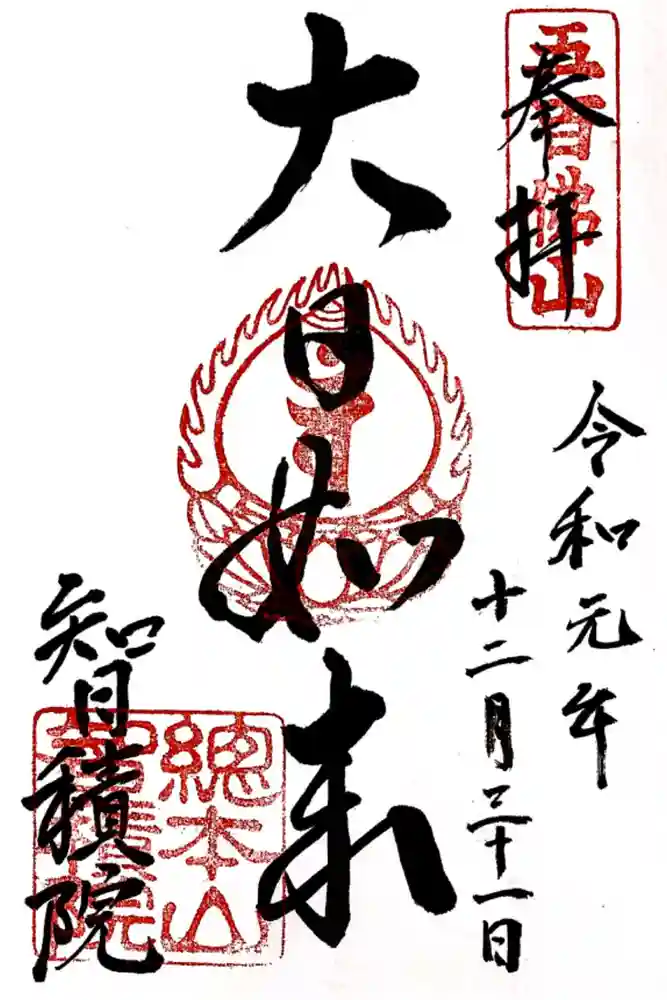 奉拝
五百佛山
令和元年
十二月三十一日
大日如来
智積院
總本山
智積院